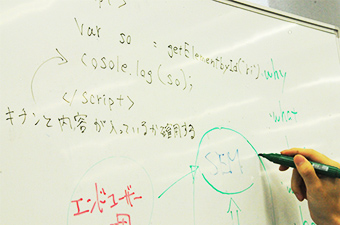 var so = getElementbyid('sri').why
cosole.log(so);
what
</script>
キチンと内容が入っているか確認する
SEM
エンドユーザー